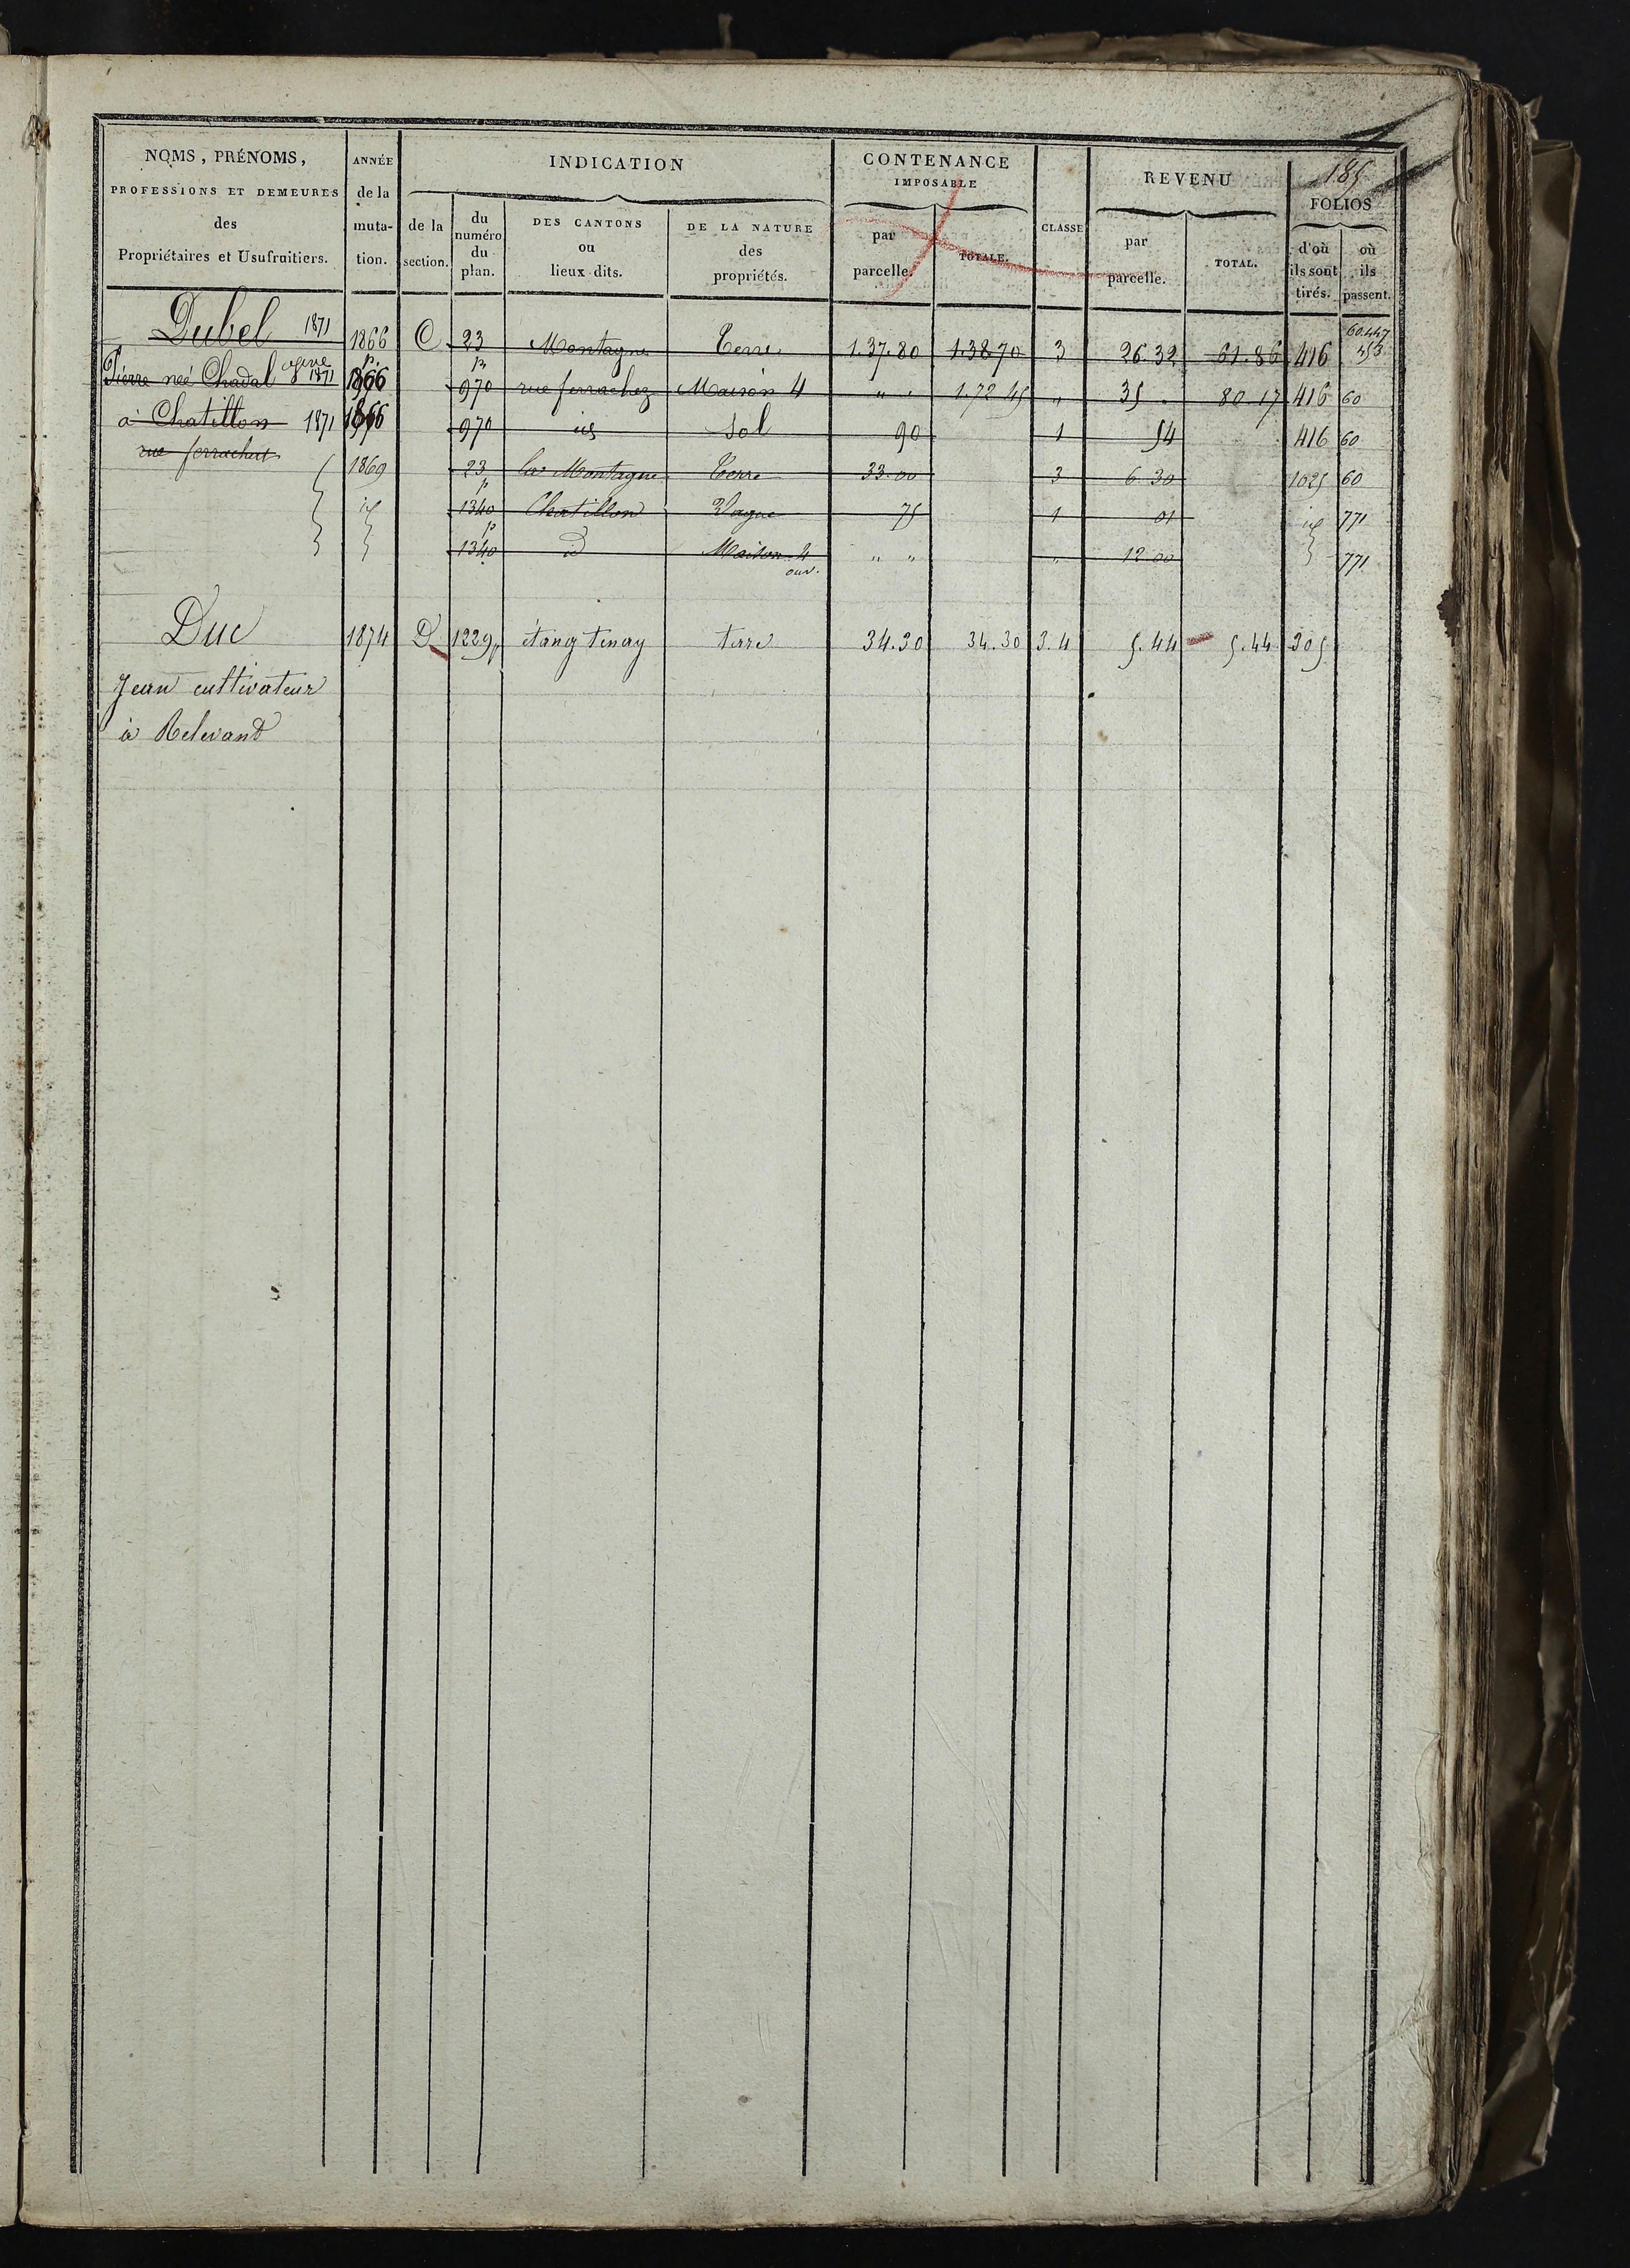 185
NOMS, PRÉNOMS,
PROFESSIONS ET DEMEURES
des
Propriétaires et Usufruitiers.
ANNÉE
de la
muta-
tion.
INDICATION
de la
section.
du
numéro
du
plan.
DES CANTONS
ou
lieux-dits.
DE LA NATURE
des
propriétés.
CONTENANCE
IMPOSABLE
par
parcelle.
TOTALE.
CLASSE
REVENU
par
parcelle.
TOTAL.
FOLIOS
d'où
ils sont
tirés.
où
ils
passent.
Dubel 1871 1866 C 23 Montagne Terre 1.37.80 1.38.70 3 26.32 61.86 416 60.447
353
Pierre neé Chadal 1871 1866 970 rue ferrachez Maison 4 " " 1.72 45 " 35 . 80 17 416 60
à Chatillon 1871 1866 970 id Sol 90 1 54 416 60
rue ferrachat
1869 23 La Montagne Terre 33.00 3 6 30 1025 60
id 1340 p Chatillon Vague 75 1 01 id 771
1340 p id Maison 4 " " " 12 00 771
ouv.
Duc 1874 D 1229p étang tenay terre 34.30 34.30 3.4 5.44 5.44 305
Jean cultivateur
à Relevant